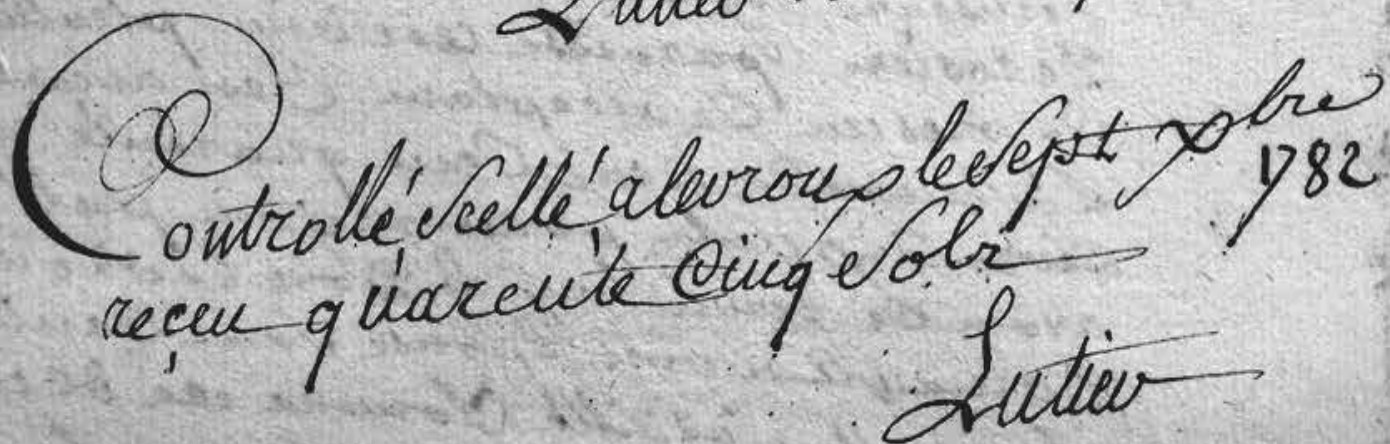 Lutier
Controllé scellé a levroux le sept xbre
1782
reçeu quarente Cinq Sols
Lutier